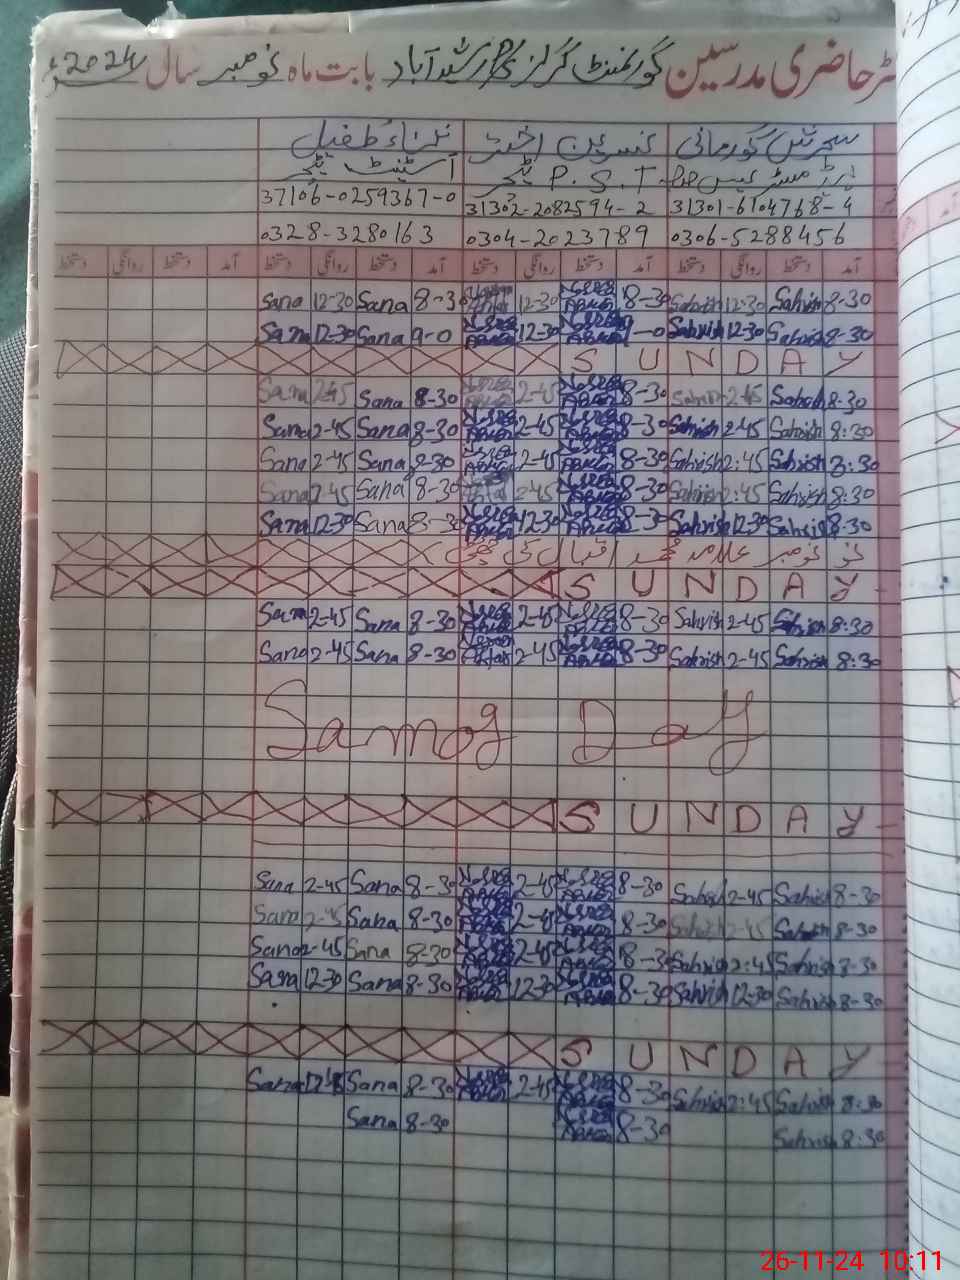 حاضری مدرسین گورنمنٹ گرلز رشید آباد بابت ماہ نومبر سال 2024
سحرش گورمانی نسرین اختر ثناء طفیل
ہیڈ مسٹریس P.S.T ٹیچر اسسٹنٹ ٹیچر
31301-6104768-4 31302-2082594-2 37106-0259367-0
0306-5288456 0304-2023789 0328-3280163
آمد دستخط روانگی دستخط آمد دستخط روانگی دستخط آمد دستخط روانگی دستخط آمد دستخط روانگی دستخط
Sana 12-30 Sana 8-30 12-30 8-30 Sahrish 12-30 Sahrish 8-30
Sana 12-30 Sana 9-0 12-30 9-0 Sahrish 12-30 Sahrish 8-30
SUNDAY
Sana 2-45 Sana 8-30 2-45 8-30 Sahrish 2-45 Sahrish 8-30
Sana 2-45 Sana 8-30 2-45 8-30 Sahrish 2-45 Sahrish 8:30
Sana 2-45 Sana 8-30 2-45 8-30 Sahrish 2:45 Sahrish 8:30
Sana 2-45 Sana 8-30 2-45 8-30 Sahrish 2:45 Sahrish 8:30
Sana 12-30 Sana 8-30 12-30 8-30 Sahrish 12-30 Sahrish 8-30
نو نومبر علامہ محمد اقبال کی چھٹی
SUNDAY
Sana 2-45 Sana 8-30 2-45 8-30 Sahrish 2-45 Sahrish 8:30
Sana 2-45 Sana 8-30 2-45 8-30 Sahrish 2-45 Sahrish 8:30
Samog Day
SUNDAY
Sana 2-45 Sana 8-30 2-45 8-30 Sahrish 2-45 Sahrish 8-30
Sana 2-45 Sana 8-30 2-45 8-30 Sahrish 2-45 Sahrish 8-30
Sana 2-45 Sana 8-30 2-45 8-30 Sahrish 2:45 Sahrish 8-30
Sana 12-30 Sana 8-30 12-30 8-30 Sahrish 12-30 Sahrish 8-30
SUNDAY
Sana 2-45 Sana 8-30 2-45 8-30 Sahrish 2:45 Sahrish 8:30
Sana 8-30 8-30 Sahrish 8:30
26-11-24 10:11